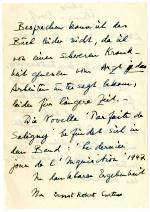 Besprechen kann ich das
Buch leider nicht, da ich
von einer schweren Krank-
heit genesen vom Arzt jedes
Arbeiten untersagt bekam,
leider für längere Zeit.
Die Novelle "Parfait de
Saligny" befindet sich in
dem Band: "Le dernier
jour de l'Inquisition" 1947.
In dankbarer Ergebenheit
Ihr Ernst Robert Curtius